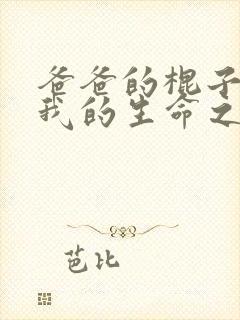 爸爸的棍子
我的生命之
芭比